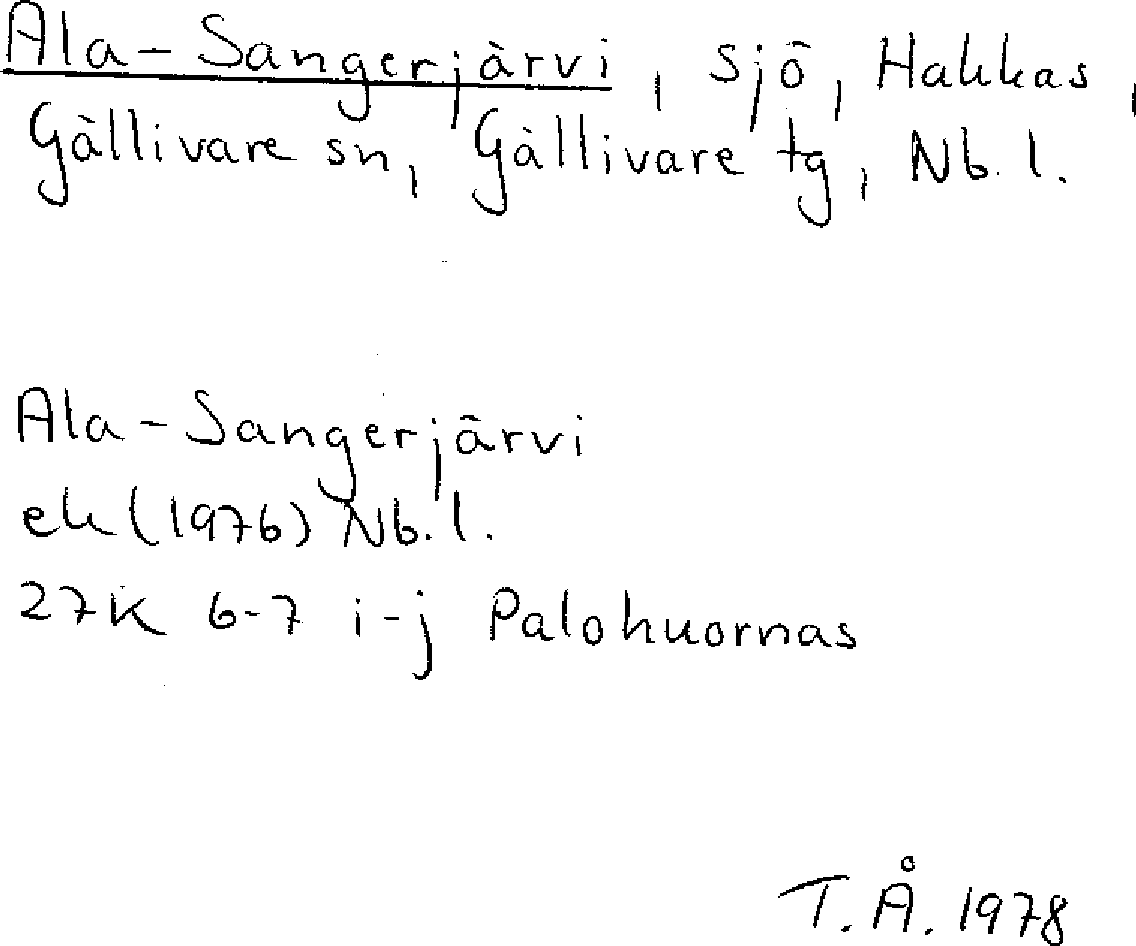 Ala-Sangerjärvi, sjö, Hakkas,
Gällivare sn, Gällivare tg, Nb. l.
Ala-Sangerjärvi
ek (1976) Nb. l.
27K 6-7 i-j Palohuornas
T.Å. 1978